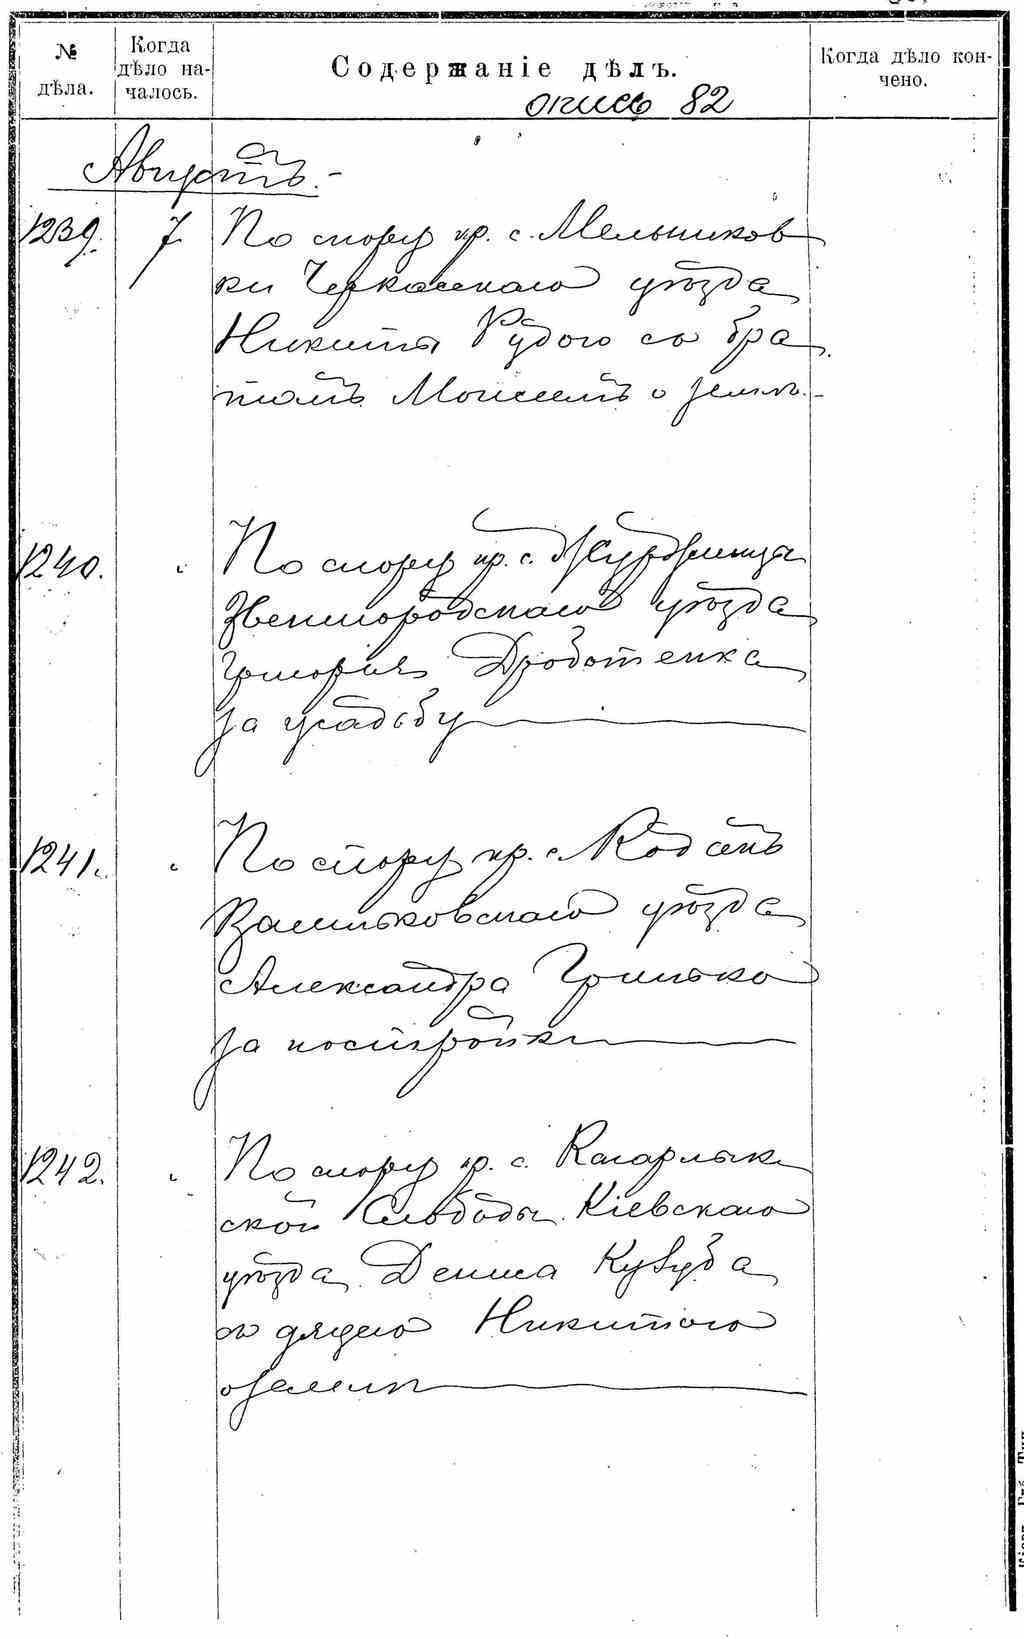 № дѣла.
Когда дѣло на-чалось.
Содержаніе дѣлъ.
Когда дѣло кон-чено.
опись 82
Августъ.
1239. 7 По спору кр. с. Мельников
ки Черкасскаго уѣзда
Никиты Рудого со бра
томъ Моисеемъ о землѣ.
1240. " По спору кр. с.
Звенигородскаго уѣзда
Григорія Дроботенка
за усадьбу
1241. " По спору кр. с.
Васильковскаго уѣзда
Александра Грицька
за постройки
1242. " По спору кр. с. Кагарлык
ской Слободы Кіевскаго
уѣзда Дениса
съ дядею Никитою
о землѣ